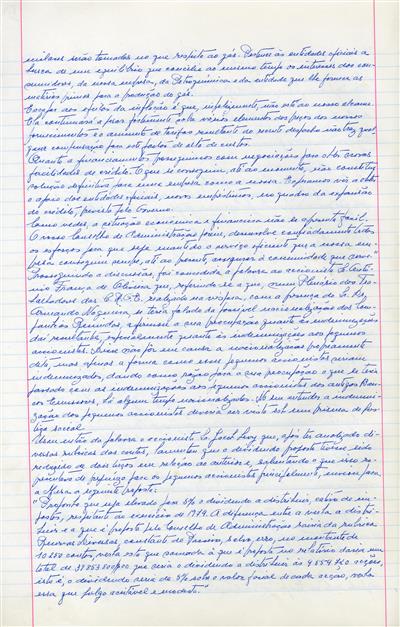 milares serão tomadas no que respeita ao gás. Pertence às entidades oficiais a
busca de um equilíbrio que concilie ao mesmo tempo os interesses dos con-
sumidores, da nossa empresa, da Petroquímica e da entidade que lhe fornece as
matérias primas para a produção de gás.
Escapar aos efeitos da inflação é que, simplesmente não está ao nosso alcance.
Ela continuará a pesar fortemente pelos vários elementos dos preços dos nossos
fornecimentos e o aumento de tarifas resultante do recente despacho não traz qual-
quer compensação para este factor de alta de custos.
Quanto a financiamentos, prosseguimos com negociações para obter novas
facilidades de crédito. O que se conseguiu, até ao momento, não constitui
solução definitiva para uma empresa como a nossa. Esperamos vir a obter
o apoio das entidades oficiais, novos empréstimos, no quadro da expansão
do crédito, prevista pelo Governo.
Como vedes, a situação económica e financeira não se apresenta fácil.
O vosso Conselho de Administração, porém, desenvolve confiadamente todos
os esforços para que seja mantido o serviço eficiente que a nossa em-
presa conseguiu sempre, até ao presente, assegurar à comunidade que serve."
Prosseguindo a discussão, foi concedida a palavra ao accionista Sr. Celesti-
no França de Oliveira que, referindo-se a que, num Plenário dos Tra-
balhadores das C.R.G.E. realizado na véspera, com a presença do Sr. Eng.
Nogueira, se teria falado da possível nacionalização das Com-
panhias Reunidas, afirmou a sua preocupação quanto às indemnizações
daí resultantes, especialmente quanto às indemnizações aos pequenos
accionistas. Disse não pôr em causa a nacionalização propriamente
dita, mas apenas a forma como esses pequenos accionistas seriam
indemnizados, dando como razão para a sua preocupação o que se teria
passado com as indemnizações aos pequenos accionistas dos antigos Ban-
cos Emissores, há algum tempo nacionalizados. No seu entender a indemni-
zação dos pequenos accionistas deveria ser vista sob um prisma de jus-
tiça social.
Usou então da palavra o accionista Sr. que, após ter analizado di-
versas rubricas das contas, lamentou que o dividendo proposto tivesse sido
reduzido de dois terços em relação ao anterior e, salientando o que isso re-
presentava de prejuízo para os pequenos accionistas principalmente, enviou para
a Mesa a seguinte proposta:
"Proponho que seja elevado para 5% o dividendo a distribuir, cativo de im-
postos, respeitante ao exercício de 1974. A diferença entre a verba a distri-
buir e a que é proposta pelo Conselho de Administração sairia da rubrica
Reservas Diversas, constante do Passivo, salvo erro, no montante de
10 250 contos, verba esta que somada à que é proposta no relatório daria um
total de que seria o dividendo a distribuir às acções,
isto é, o dividendo seria de 5% sobre o valor facial de cada acção, verba
essa que julgo aceitável e modesta".